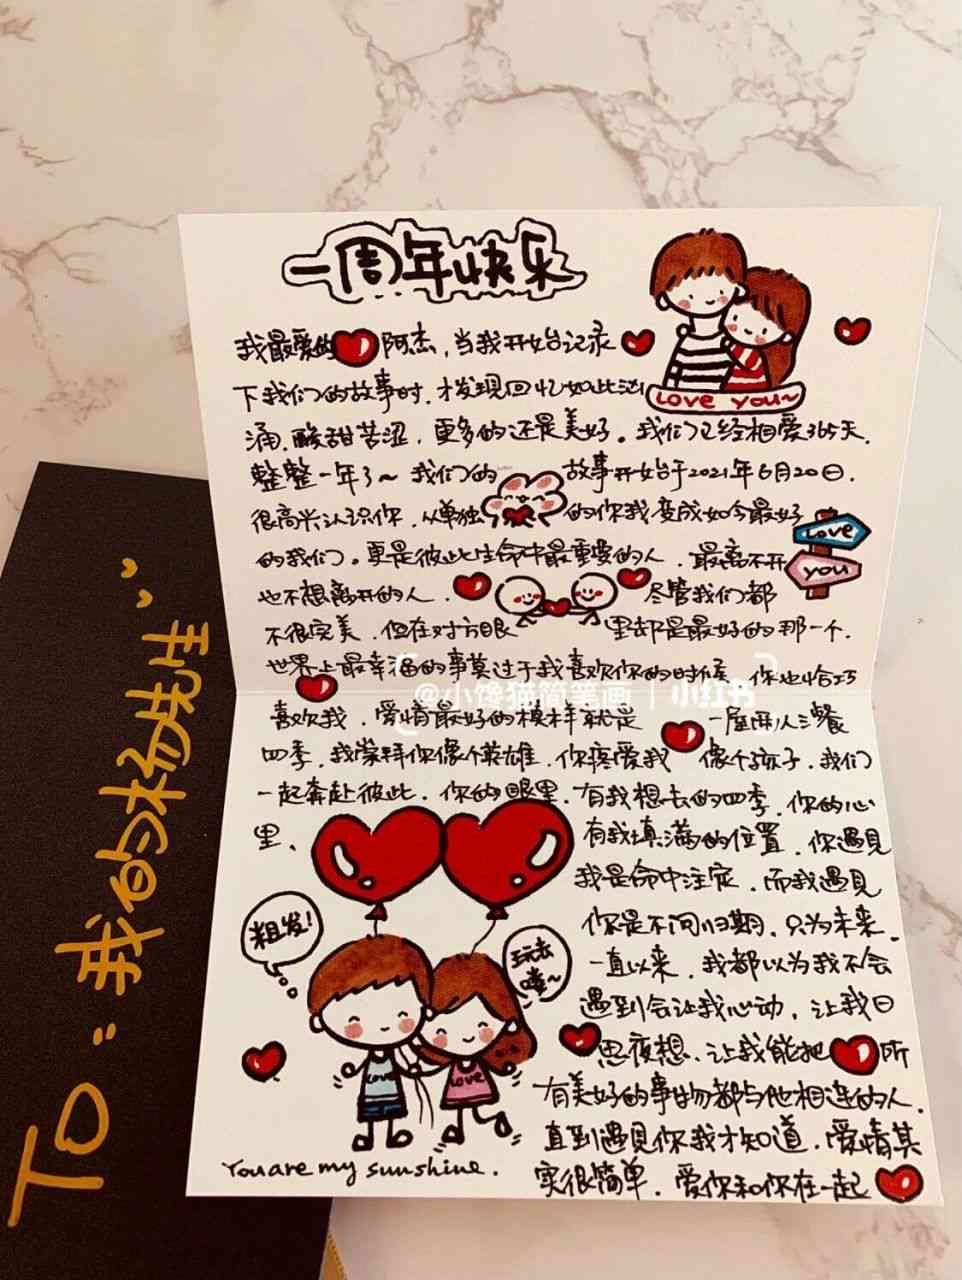 一周年快乐
我最爱的阿杰,当我开始记录
下我们的故事时,才发现回忆如此汹
Love you~
涌.酸甜苦涩,更多的还是美好。我们已经相爱365天.
整整一年了~ 我们的故事开始于2021年6月20日.
很高兴认识你,从单独的你我变成如今最好
Love
的我们。更是彼此生命中最重要的人.最离不开
you
也不想离开的人.尽管我们都
不很完美.但在对方眼里却是最好的那一个.
世界上最幸福的事莫过于我喜欢你的时候.你也恰巧
@小馋猫简笔画 | 小红书
喜欢我.爱情最好的模样就是一屋两人三餐
四季.我崇拜你像个英雄.你疼爱我像个孩子.我们
一起奔赴彼此.你的眼里.有我想去的四季.你的心
里、有我填满的位置.你遇見
我是命中注定.而我遇見
你是不问归期.只为未来.
粗发!
玩去喽~
一直以来.我都以为我不会
遇到会让我心动,让我日
思夜想.让我能把所
有美好的事物都与他相连的人.
love
love
直到遇见你我才知道.爱情其
实很简单.爱你和你在一起
You are my sunshine.
TO:我的杨先生